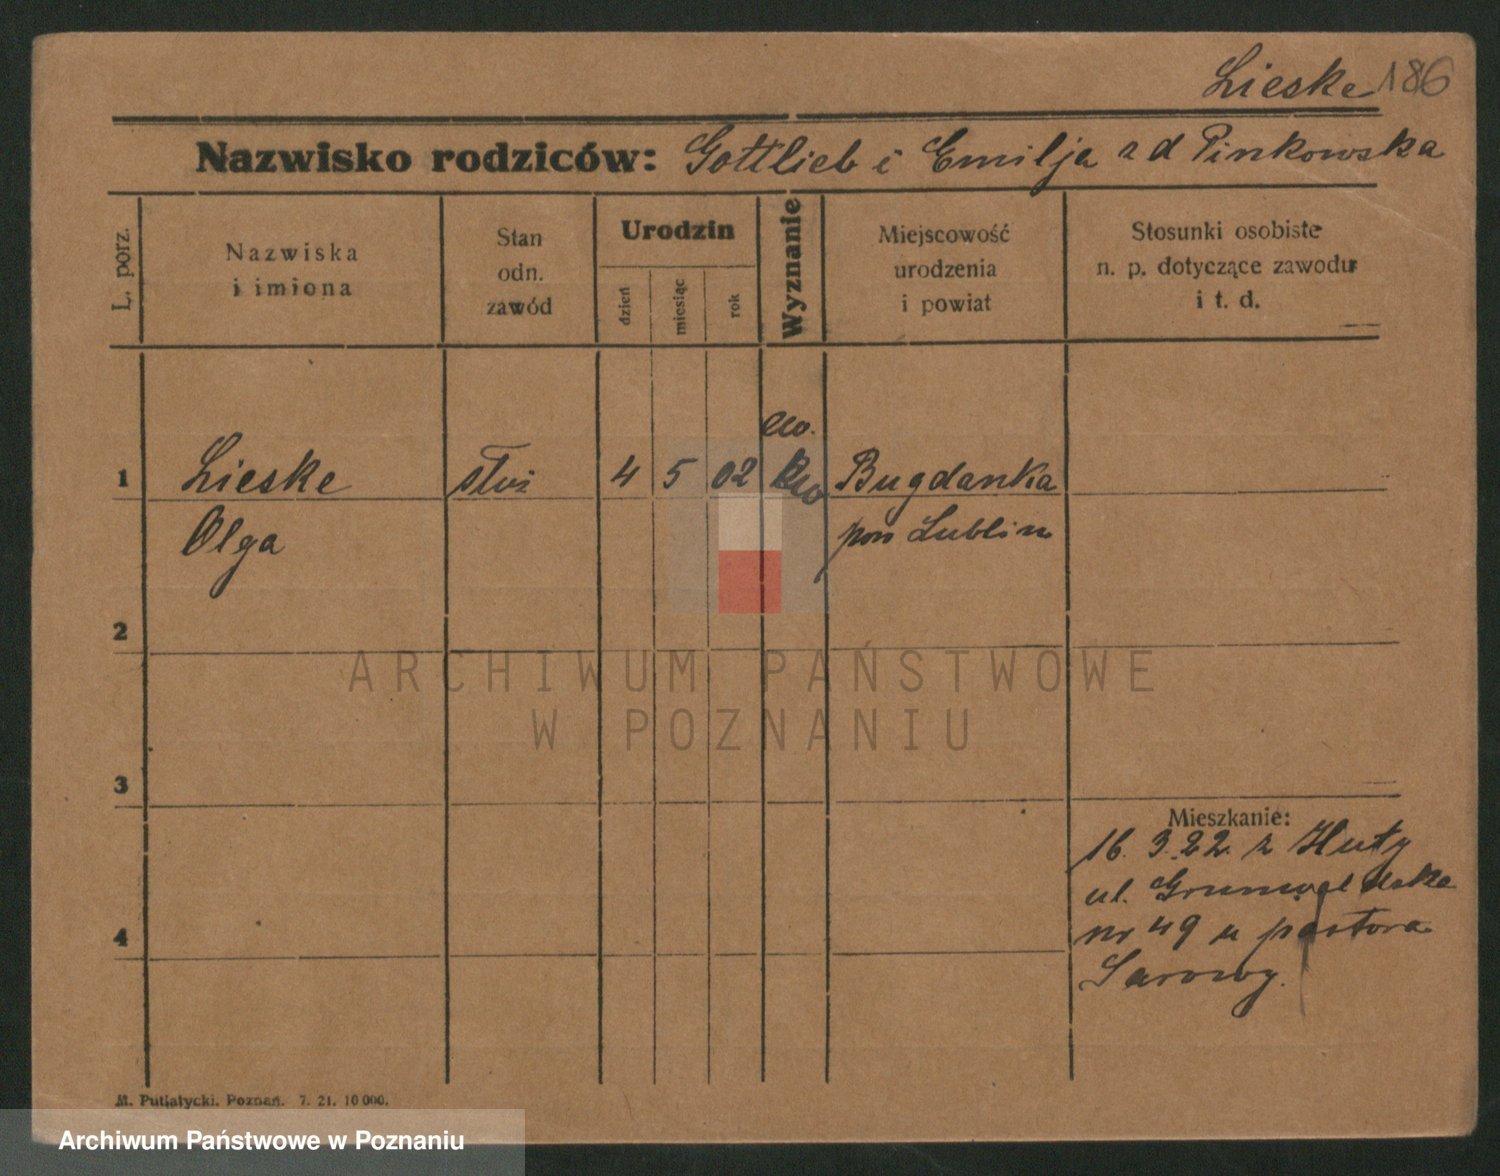 Lieske 186
Nazwisko rodziców: Gottlieb i Emilja z d Pinkowska
L. porz.
Nazwiska
i imiona
Stan
odn.
zawód
Urodzin
dzień
miesiąc
rok
Wyznanie
Miejscowość
urodzenia
i powiat
Stosunki osobiste
n. p. dotyczące zawodu
i t. d.
ew.
1 Lieske służ 4 5 02 Bugdanka
Olga pow Lublin
2
ARCHIWUM PAŃSTWOWE
W POZNANIU
3
Mieszkanie:
16. 3. 22. z Huty
ul. Grunwaldzka
nr 49 u pastora
4
Sarowy.
M. Putiatycki. Poznań. 7. 21. 10 000.
Archiwum Państwowe w Poznaniu